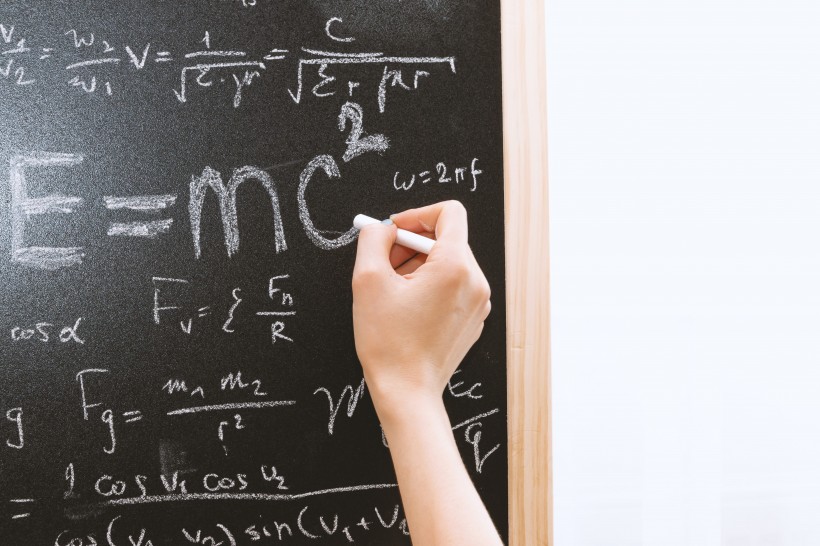 V₁/V₂ = w₂/w₁ V = 1/√(ε·μ) = C/√(εr μr)
E = mc²
ω=2πf
Fᵥ = ξ Fₙ/R
cos α
g Fg = m₁ m₂/r²
2 cos v₁ cos v₂
= cos(v₁ v₂) sin(v₁+v₂